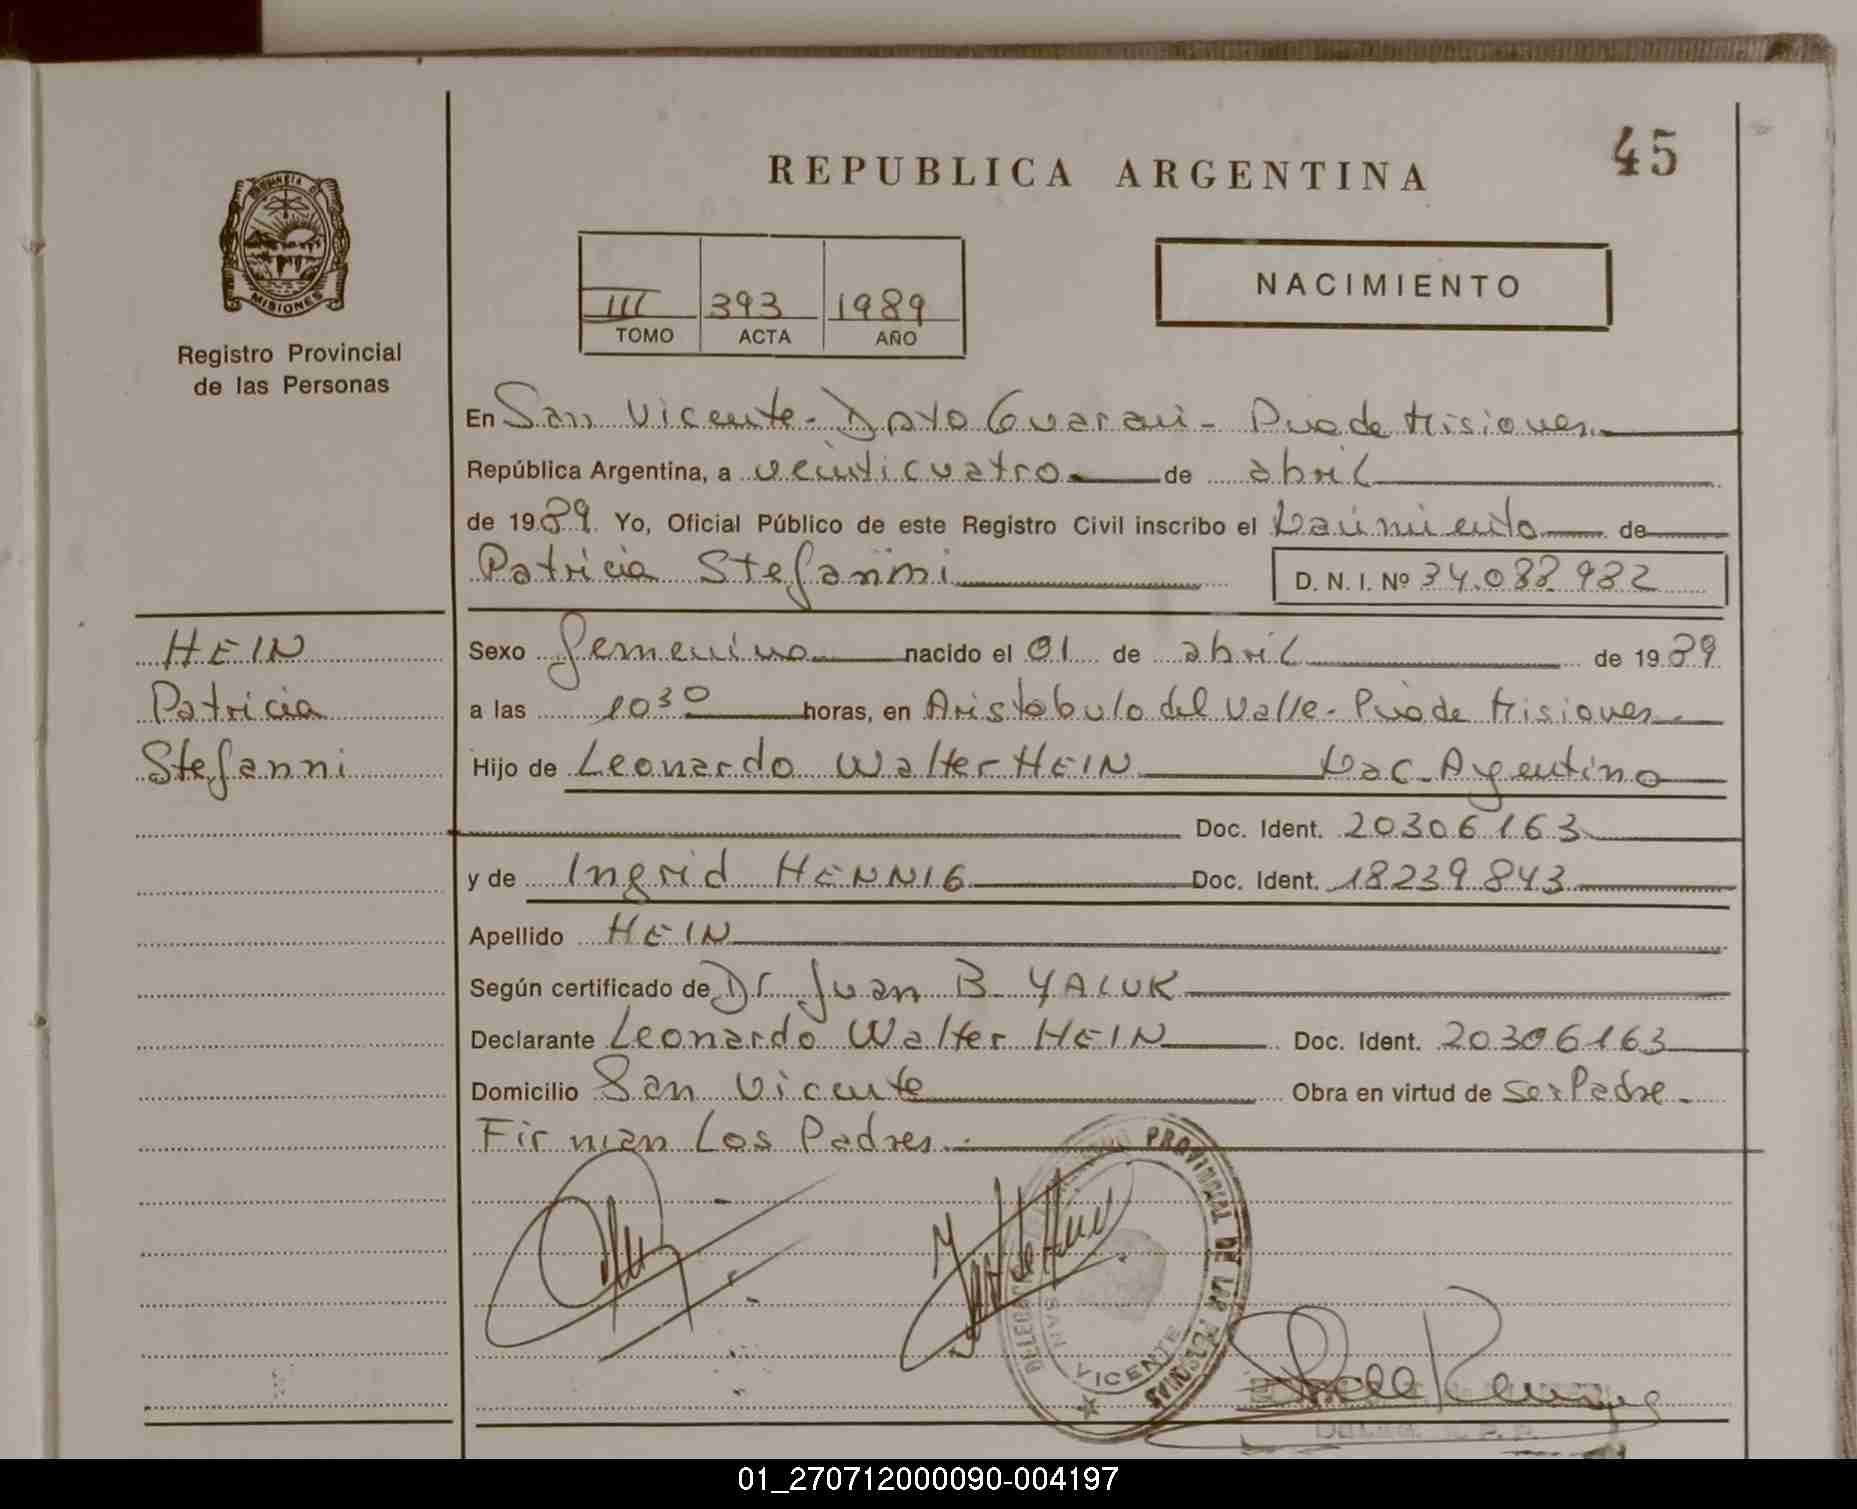 45
REPUBLICA ARGENTINA
PROVINCIA DE
MISIONES
Registro Provincial
de las Personas
III 393 1989
TOMO ACTA AÑO
NACIMIENTO
En San Vicente - Dpto Guarani - Pcia de Misiones
República Argentina, a veinticuatro de abril
de 1989. Yo, Oficial Público de este Registro Civil inscribo el Nacimiento de
Patricia Stefanni D. N. I. Nº 34.088.982
HEIN
Patricia
Stefanni
Sexo femenino nacido el 01 de abril de 1989
a las 10 30 horas, en Aristobulo del Valle - Pcia de Misiones
Hijo de Leonardo Walter HEIN Nac. Argentino
Doc. Ident. 20306163
y de Ingrid HENNIG Doc. Ident. 18239843
Apellido HEIN
Según certificado de Dr Juan B YALUK
Declarante Leonardo Walter HEIN Doc. Ident. 20306163
Domicilio San Vicente Obra en virtud de ser Padre
Firman Los Padres.
PROVINCIAL DE LAS PERSONAS
SAN VICENTE
01_270712000090-004197